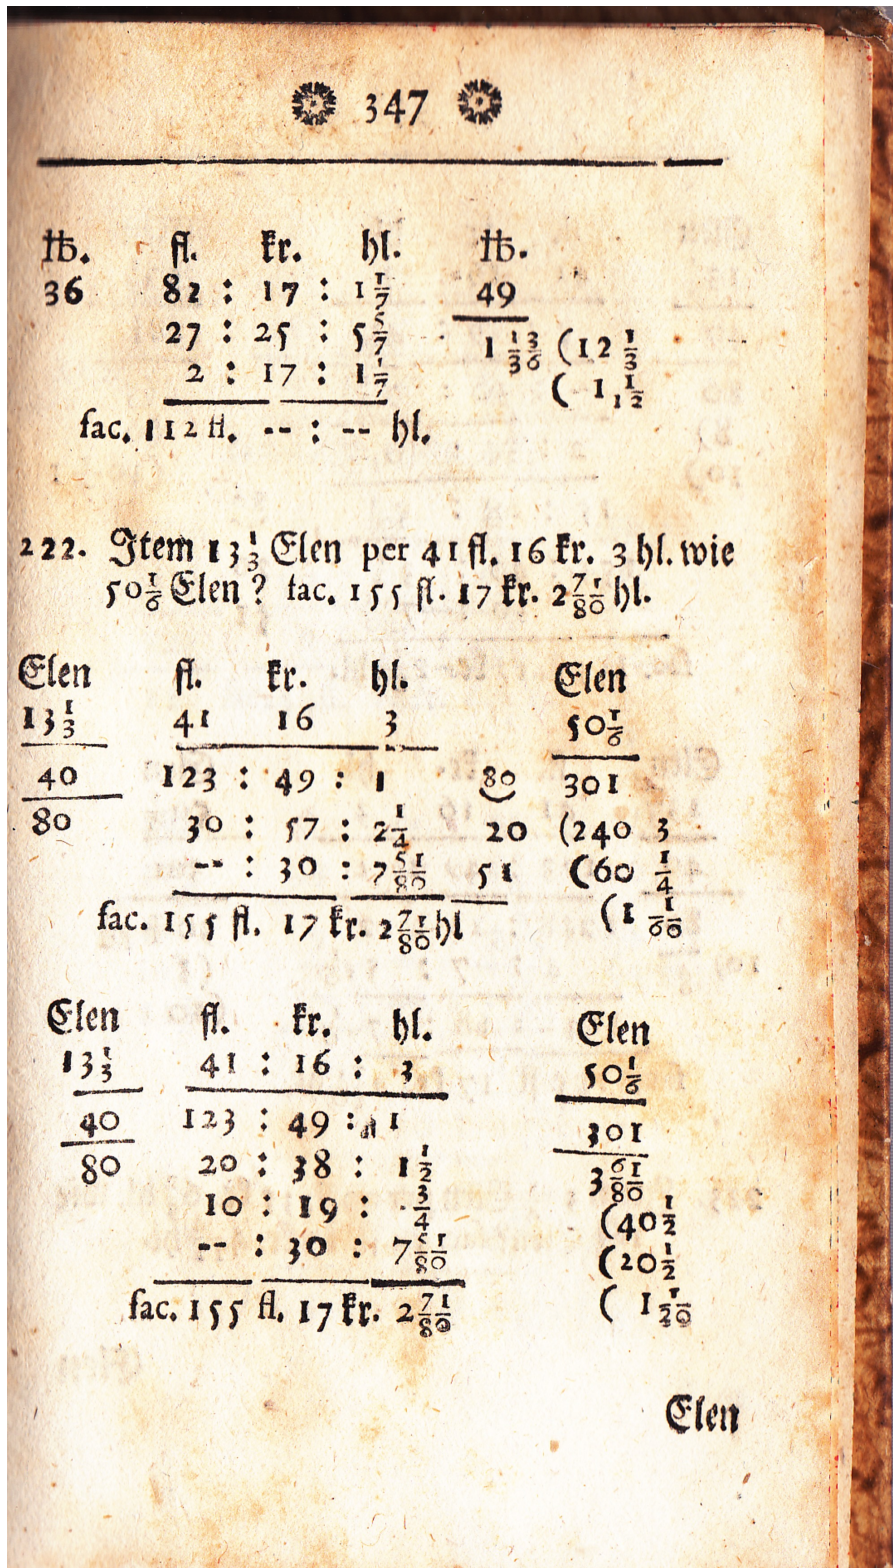 347
℔. fl. kr. hl. ℔.
36 82 : 17 : 1 1/7 49
27 : 25 : 5 5/7 1 13/36 (12 1/3
2 : 17 : 1 1/7 ( 1 1/12
fac. 112 fl. -- : -- hl.
222. Item 13 1/3 Elen per 41 fl. 16 kr. 3 hl. wie
50 1/6 Elen ? fac. 155 fl. 17 kr. 2 71/80 hl.
Elen fl. kr. hl. Elen
13 1/3 41 16 3 50 1/6
40 123 : 49 : 1 80 301
80 30 : 57 : 2 1/4 20 (240 3
-- : 30 : 7 51/80 51 (60 1/4
fac. 155 fl. 17 kr. 2 71/80 hl (1 1/60
Elen fl. kr. hl. Elen
13 1/3 41 : 16 : 3 50 1/6
40 123 : 49 : 1 301
80 20 : 38 : 1 1/2 3 61/80
10 : 19 : 3/4 (40 1/2
-- : 30 : 7 51/80 (20 1/2
fac. 155 fl. 17 kr. 2 71/80 ( 1 1/20
Elen